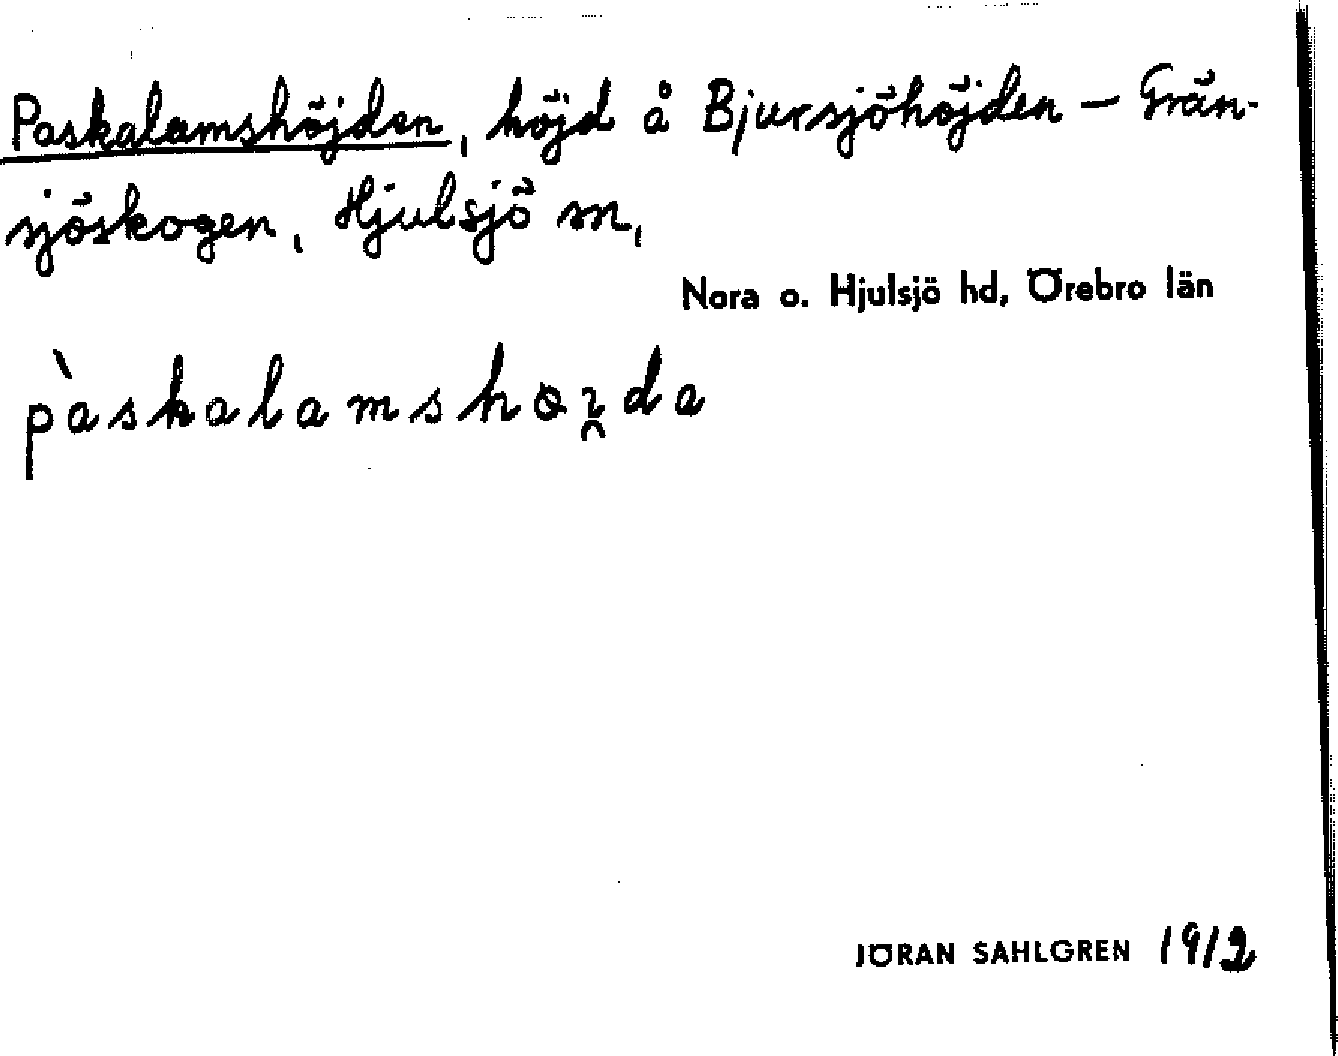 Paskalamshöjden, höjd å Bjursjöhöjden – Grän-
sjöskogen, Hjulsjö sn,
Nora o. Hjulsjö hd, Örebro län
pàskalamshɵı̯da
JÖRAN SAHLGREN 1912